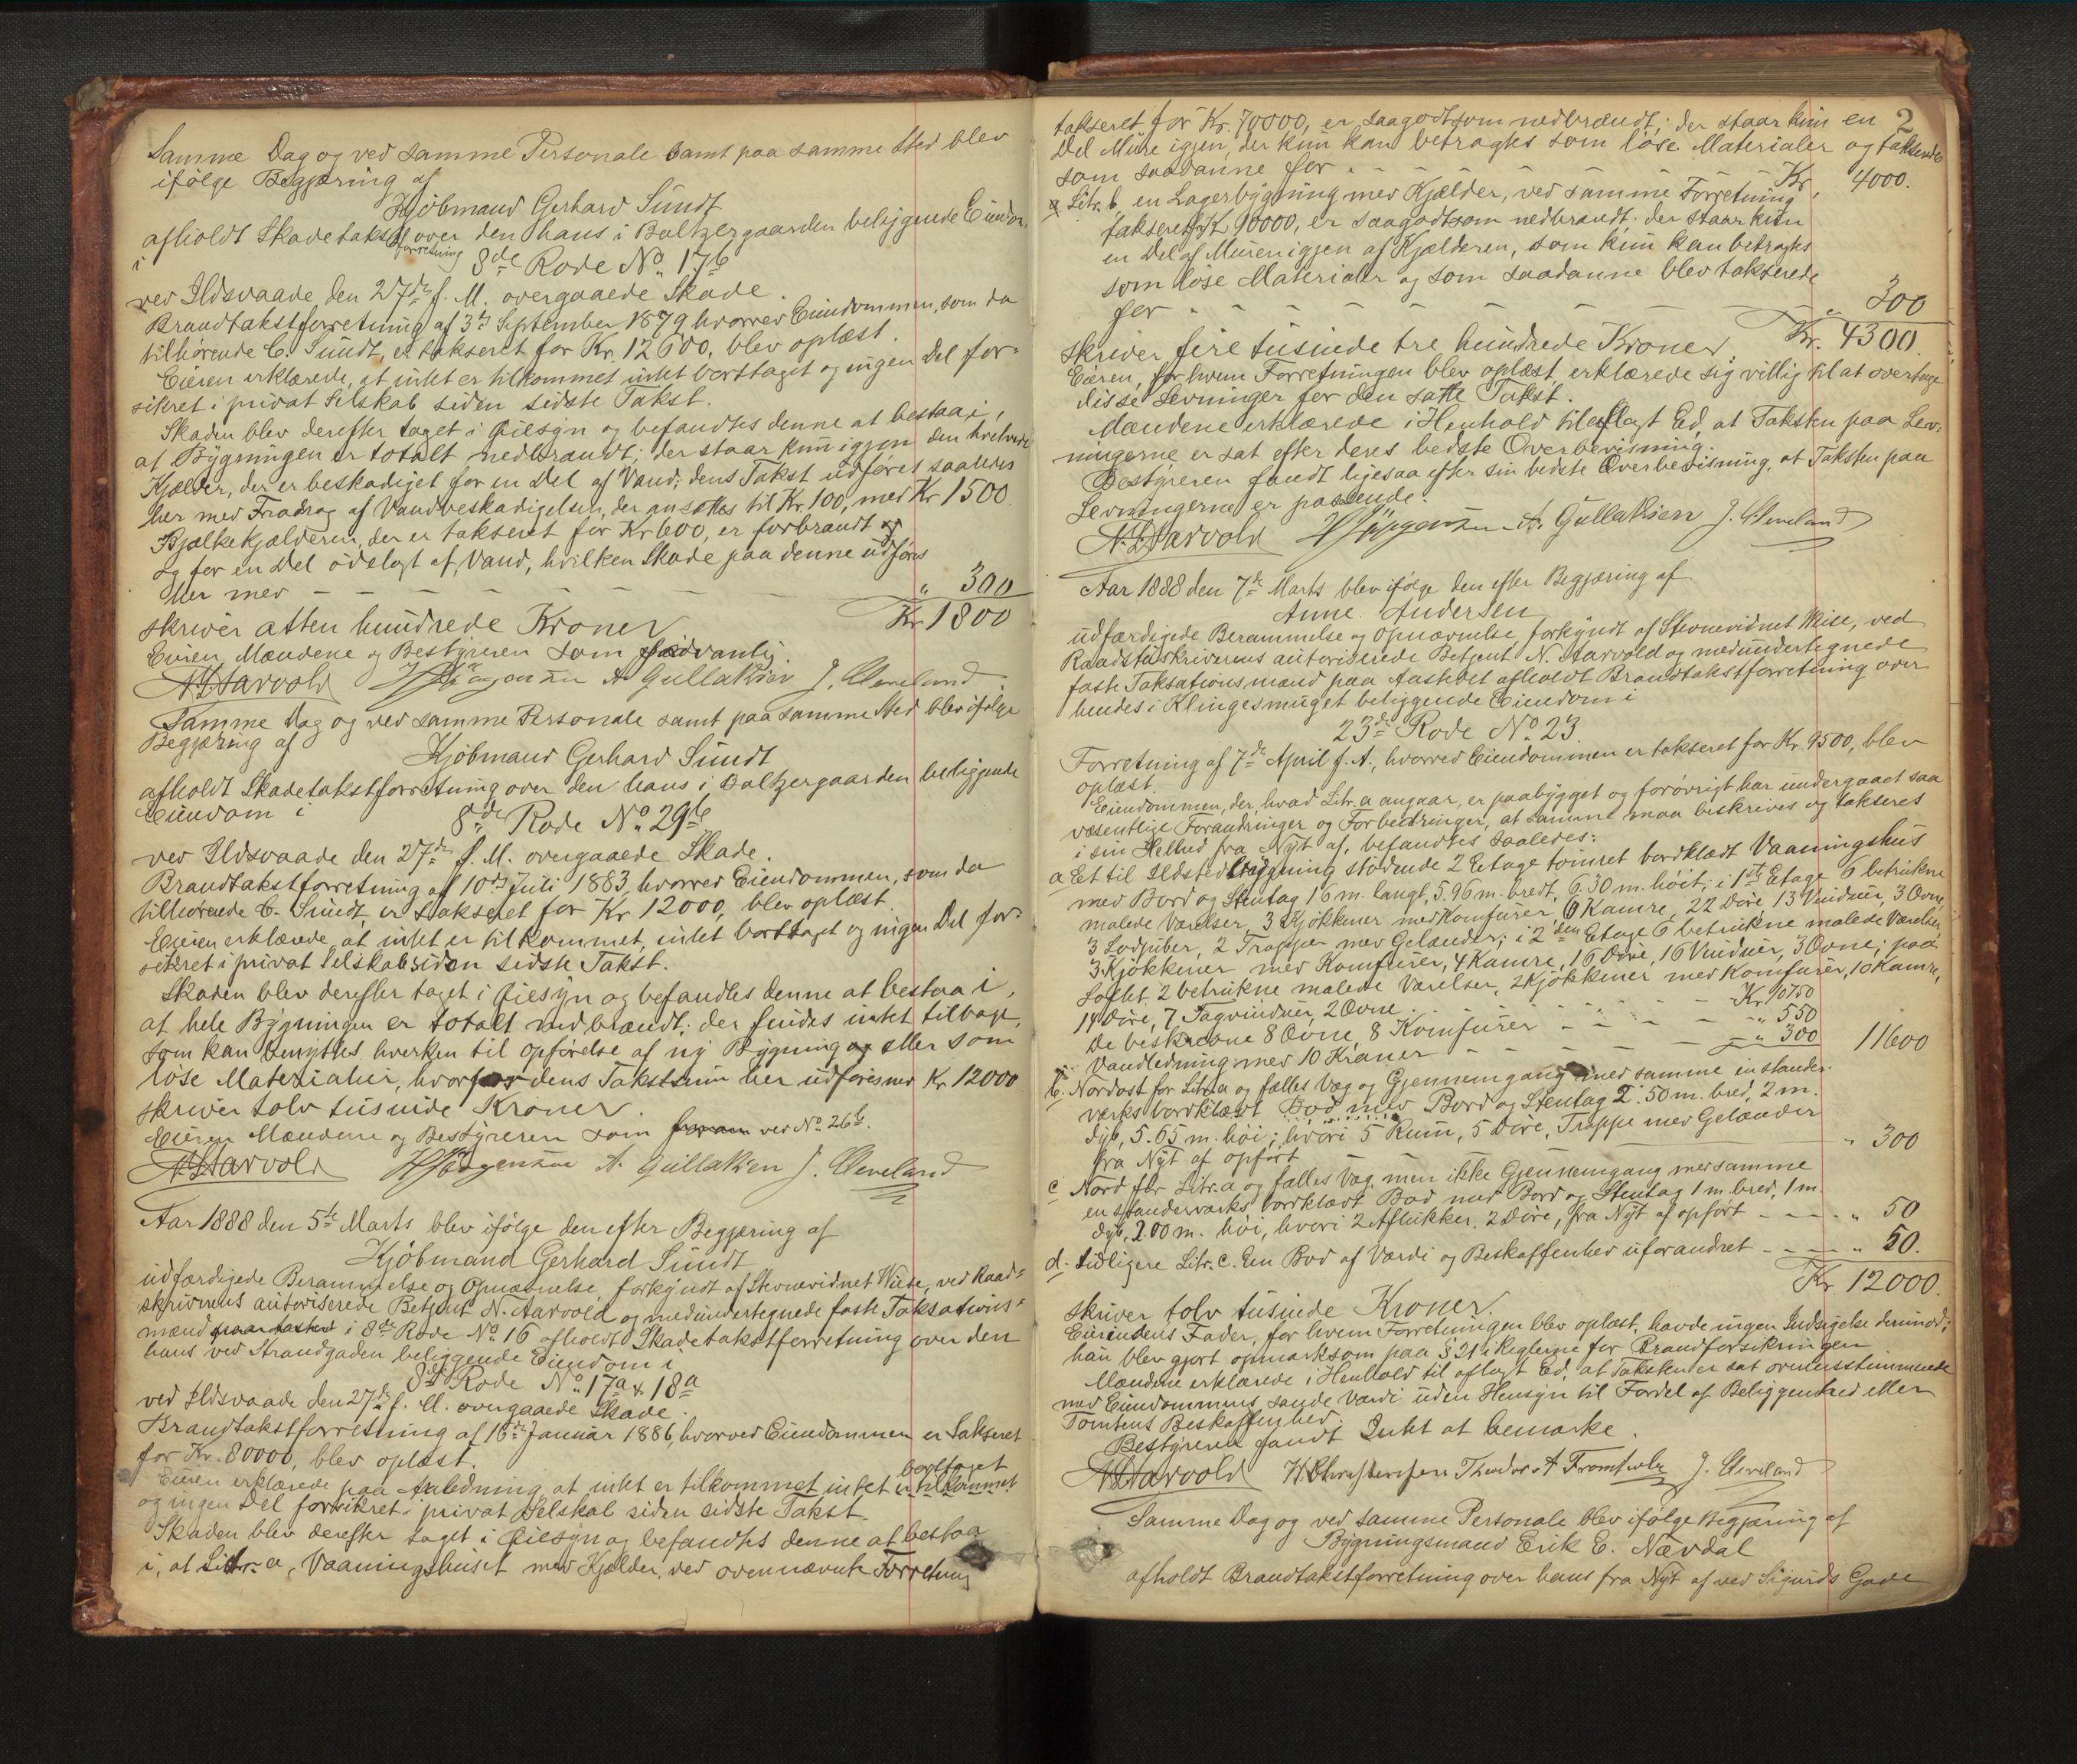 Samme Dag og ved samme Personale samt paa samme Sted blev
ifølge Begjæring af
Kjøbmand Gerhard Sundt
afholdt Skadetakstforretning over den hans i Baltzergaarden beliggende Eiendom,
i 8de Rode No. 17b
ved Ildsvaade den 27de f. M. overgaaede Skade.
Brandtakstforretning af 3die September 1879 hvorved Eiendommen, som da
tilhørende C. Sundt, er takseret for Kr. 12600, blev oplæst.
Eieren erklærede, at intet er tilkommet intet borttaget og ingen Del for-
sikret i privat Selskab siden sidste Takst.
Skaden blev derefter taget i Øiesyn og befandtes denne at bestaa i,
at Bygningen er totalt nedbrændt; der staar kun igjen den hvelvede
Kjælder, der er beskadiget for en Del af Vand; dens Takst udføres saaledes
her med Fradrag af Vandbeskadigelsen, der ansættes til Kr. 100, med Kr 1500.
Bjælkekjælderen, der er takseret for Kr 600, er forbrændt
og for en Del ødelagt af Vand, hvilken Skade paa denne udføres
her med " 300
Kr. 1800
skriver atten hundrede Kroner
Eieren, Mændene og Bestyreren som sædvanlig.
N. Aarvold A Gullaksen J. Cleveland
Samme Dag og ved samme Personale samt paa samme Sted blev ifølge
Begjæring af
Kjøbmand Gerhard Sundt
afholdt Skadetakstforretning over den hans i Baltzergaarden beliggende
Eiendom i
8de Rode No. 29b
ved Ildsvaade den 27de f. M. overgaaede Skade.
Brandtakstforretning af 10de Juli 1883, hvorved Eiendommen, som da
tilhørende C. Sundt, er takseret for Kr 12000, blev oplæst
Eieren erklærede, at intet er tilkommet, intet borttaget og ingen Del for-
sikret i privat Selskab siden sidste Takst.
Skaden blev derefter taget i Øiesyn og befandtes denne at bestaa i,
at hele Bygningen er totalt nedbrændt; der findes intet tilbage,
som kan benyttes hverken til Opførelse af ny Bygning eller som
løse Materialier, hvorfor dens Takstsum her udføres med Kr 12000
skriver tolv tusinde Kroner.
Eieren Mændene og Bestyreren som foran ved No. 26b.
N. Aarvold A. Gullaksen J. Cleveland
Aar 1888 den 5te Marts blev ifølge den efter Begjæring af
Kjøbmand Gerhard Sundt
udfærdigede Berammelse og Opnævnelse, forkyndt af Stevnevidnet Wiese, ved Raad-
skriverens autoriserede Betjent N. Aarvold og medundertegnede faste Taksations-
mænd paa Aasted i 8de Rode No 16 afholdt Skadetakstforretning over den
hans ved Strandgaden beliggende Eiendom i
8de Rode No. 17a & 18a
ved Ildsvaade den 27de f. M. overgaaede Skade.
Brandtakstforretning af 16de Januar 1886, hvorved Eiendommen er takseret
for Kr. 80000, blev oplæst.
borttaget
Eieren erklærede paa Anledning, at intet er tilkommet intet er tilkommet
og ingen Del forsikret i privat Selskab siden sidste Takst.
Skaden blev derefter taget i Øiesyn og befandtes denne at bestaa
i, at Litr. a, Vaaningshuset med Kjælder, ved ovennævnte Forretning
2
takseret for Kr. 70000, er saagodtsom nedbrændt; der staar kun en
Del Mure igjen, der kun kan betragtes som løse Materialer og takseredes
som saadanne for Kr. 4000.
Litr. b, en Lagerbygning med Kjælder, ved samme Forretning
takseret for K 10000, er saagodtsom nedbrændt; der staar kun
en Del af Muren igjen af Kjælderen, som kun kan betragtes
som løse Materialer og som saadanne blev takserede
for " 300
Kr. 4300.
skriver fire tusinde tre hundrede Kroner
Eieren, for hvem Forretningen blev oplæst, erklærede sig villig til at overtage
disse Levninger for den satte Takst.
Mændene erklærede i Henhold til aflagt Ed, at Taksten paa Lev-
ningerne er sat efter deres bedste Overbevisning.
Bestyreren fandt ligesaa efter sin bedste Overbevisning, at Taksten paa
Levningerne er passende.
N. Aarvold A. Gullaksen J. Cleveland
Aar 1888 den 7de Marts blev ifølge den efter Begjæring af
Anne Andersen
udfærdigede Berammelse og Opnævnelse, forkyndt af Stevnevidnet Wiese, ved
Raadstuskriverens autoriserede Betjent N. Aarvold og medundertegnede
faste Taksationsmænd paa Aastedet afholdt Brandtakstforretning over
hendes i Klingesmuget beliggende Eiendom i
23de Rode No. 23.
Forretning af 7de April f. A., hvorved Eiendommen er takseret for Kr. 9500, blev
oplæst.
Eiendommen, der, hvad Litr. a angaar, er paabygget og forøvrigt har undergaaet saa
væsentlige Forandringer og Forbedringer, at samme maa beskrives og takseres
i sin Helhed fra Nyt af, befandtes saaledes:
a Et til Ildsted Bygning stødende 2 Etage tømret bordklædt Vaaningshus
med Bord og Stentag 16 m. langt, 5.96 m. bredt, 6.30 m. høit; i 1ste Etage 6 betrukne
malede Værelser, 3 Kjøkkener med Komfurer, 6 Kamre, 22 Døre, 13 Vinduer, 3 Ovne,
3 Lodpiber, 2 Trapper med Gelænder; i 2den Etage 6 betrukne malede Værelser,
3 Kjøkkener med Komfurer, 4 Kamre, 16 Døre, 16 Vinduer, 3 Ovne; paa
Loftet 2 betrukne malede Værelser, 2 Kjøkkener med Komfurer, 10 Kamre,
14 Døre, 7 Tagvinduer, 2 Ovne Kr. 10750
De beskrevne 8 Ovne, 8 Komfurer " 550
Vandledning med 10 Kraner " 300 11600
b. Nordost for Litr. a og fælles Væg og Gjennemgang med samme en stander-
værks bordklædt Bod med Bord og Stentag 2.50 m. bred, 2 m.
dyb, 5.65 m. høi; hvori 5 Rum, 5 Døre, Trappe med Gelænder
fra Nyt af opført " 300
c Nord for Litr. a og fælles Væg men ikke Gjennemgang med samme
en standerværks bordklædt Bod med Bord og Stentag 1 m. bred, 1 m.
dyb, 2.00 m. høi, hvori 2 Aflukker, 2 Døre, fra Nyt af opført " 50
d. Tidligere Litr. c. En Bod af Værdi og Beskaffenhed uforandret " 50.
Kr. 12000.
skriver tolv tusinde Kroner.
Eierindens Fader, for hvem Forretningen blev oplæst, havde ingen Indsigelse derimod;
han blev gjort opmærksom paa § 21 i Reglerne for Brandforsikringen
Mændene erklærede i Henhold til aflagt Ed, at Taksten er sat overensstemmende
med Eiendommens sande Værdi uden Hensyn til Fordel af Beliggenhed eller
Tomtens Beskaffenhed.
Bestyreren fandt Intet at bemærke.
N. Aarvold J. Cleveland
Samme Dag og ved samme Personale blev ifølge Begjæring af
Bygningsmand Erik E. Nævdal
afholdt Brandtakstforretning over hans fra Nyt af ved Sigurds Gade